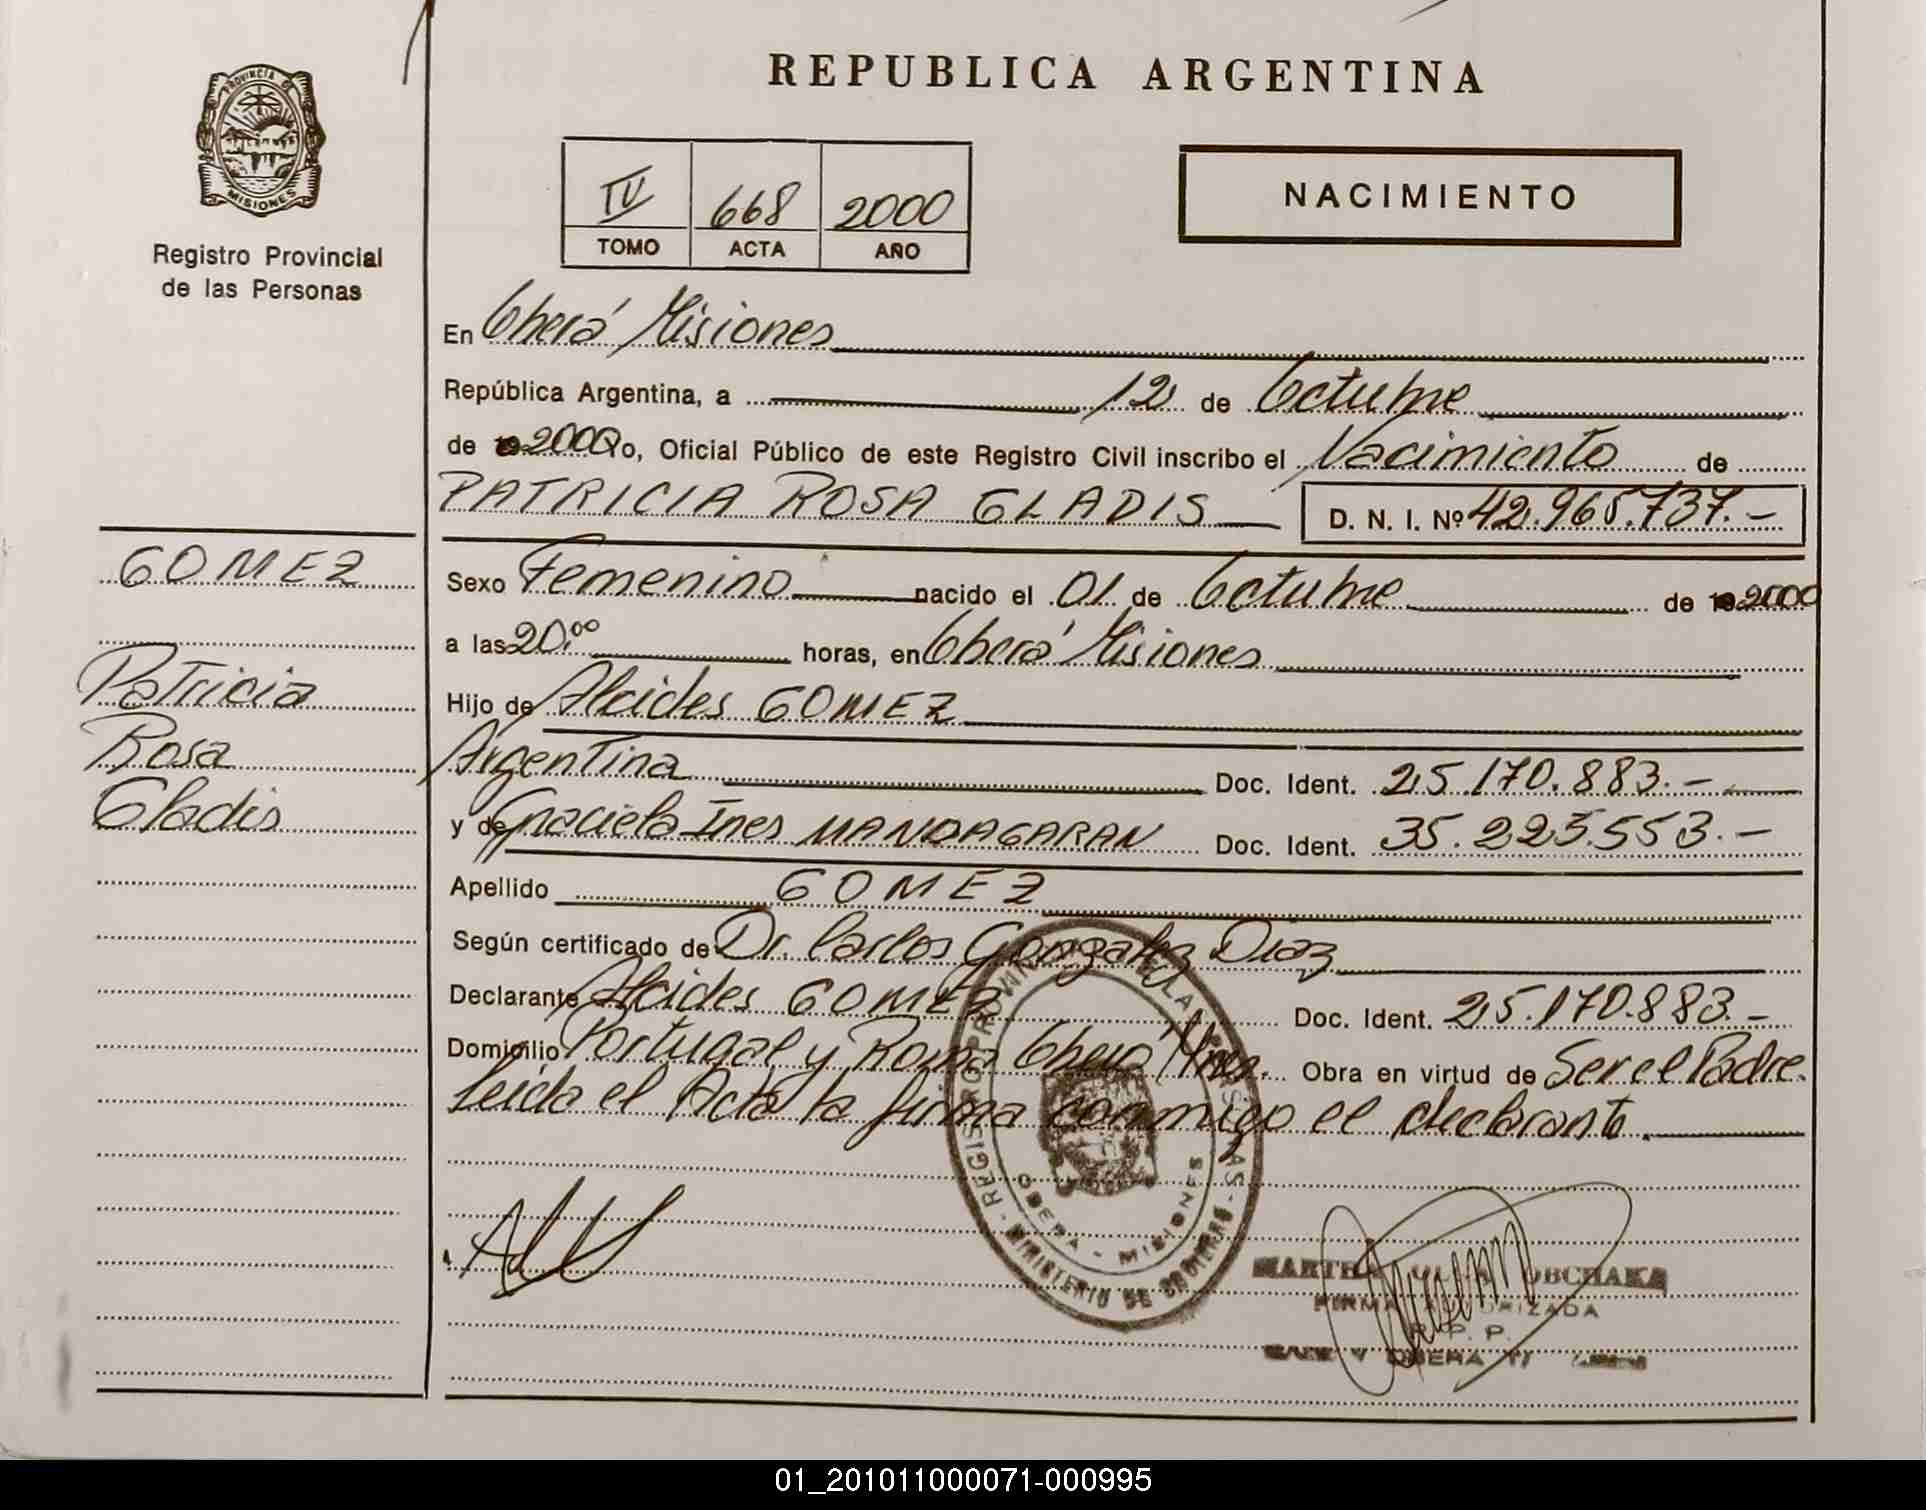 REPUBLICA ARGENTINA
PROVINCIA DE
MISIONES
Registro Provincial
de las Personas
IV 668 2000
TOMO ACTA AÑO
NACIMIENTO
En Oberá Misiones
República Argentina, a 12 de Octubre
de 19 2000 Yo, Oficial Público de este Registro Civil inscribo el Nacimiento de
PATRICIA ROSA GLADIS D. N. I. Nº 42.965.737.-
GOMEZ
Patricia
Rosa
Gladis
Sexo Femenino nacido el 01 de Octubre de 19 2000
a las 20.00 horas, en Oberá Misiones
Hijo de Alcides GOMEZ
Argentina Doc. Ident. 25.170.883.-
y de Graciela Ines MANDAGARAN Doc. Ident. 35.225.553.-
Apellido GOMEZ
Según certificado de Dr. Carlos Gonzalez Diaz
Declarante Alcides GOMEZ Doc. Ident. 25.170.883.-
Domicilio Portugal y Roma Oberá Mnes. Obra en virtud de Ser el Padre.
Leida el Acta la firma conmigo el declarante.
REGISTRO PROVIN LAS PERSONAS - MINISTERIO DE GOBIERNO
OBERA - MISIONES
FIRMA AUTORIZADA
R. P. P.
OBERA
01_201011000071-000995